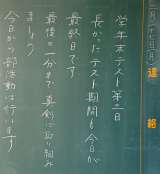 学年末テスト第二日
長かったテスト期間も今日が
最終日です
最後の一分まで真剣に取り組み
ましょう
今日から部活動は行います
連絡